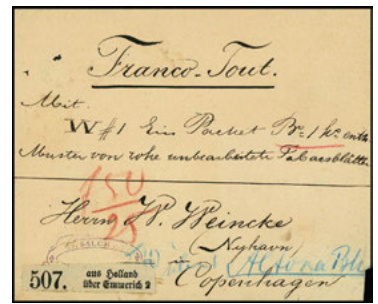 Franco-Tout.
Mit
W #1 Ein Packet Br= 1 ko enth.
Muster von rohe unbearbeitete Tabacsblätter
150
25
Herrn W. Weincke
Nyhavn
Altona Bh
Copenhagen
507. aus Holland
über Emmerich 2